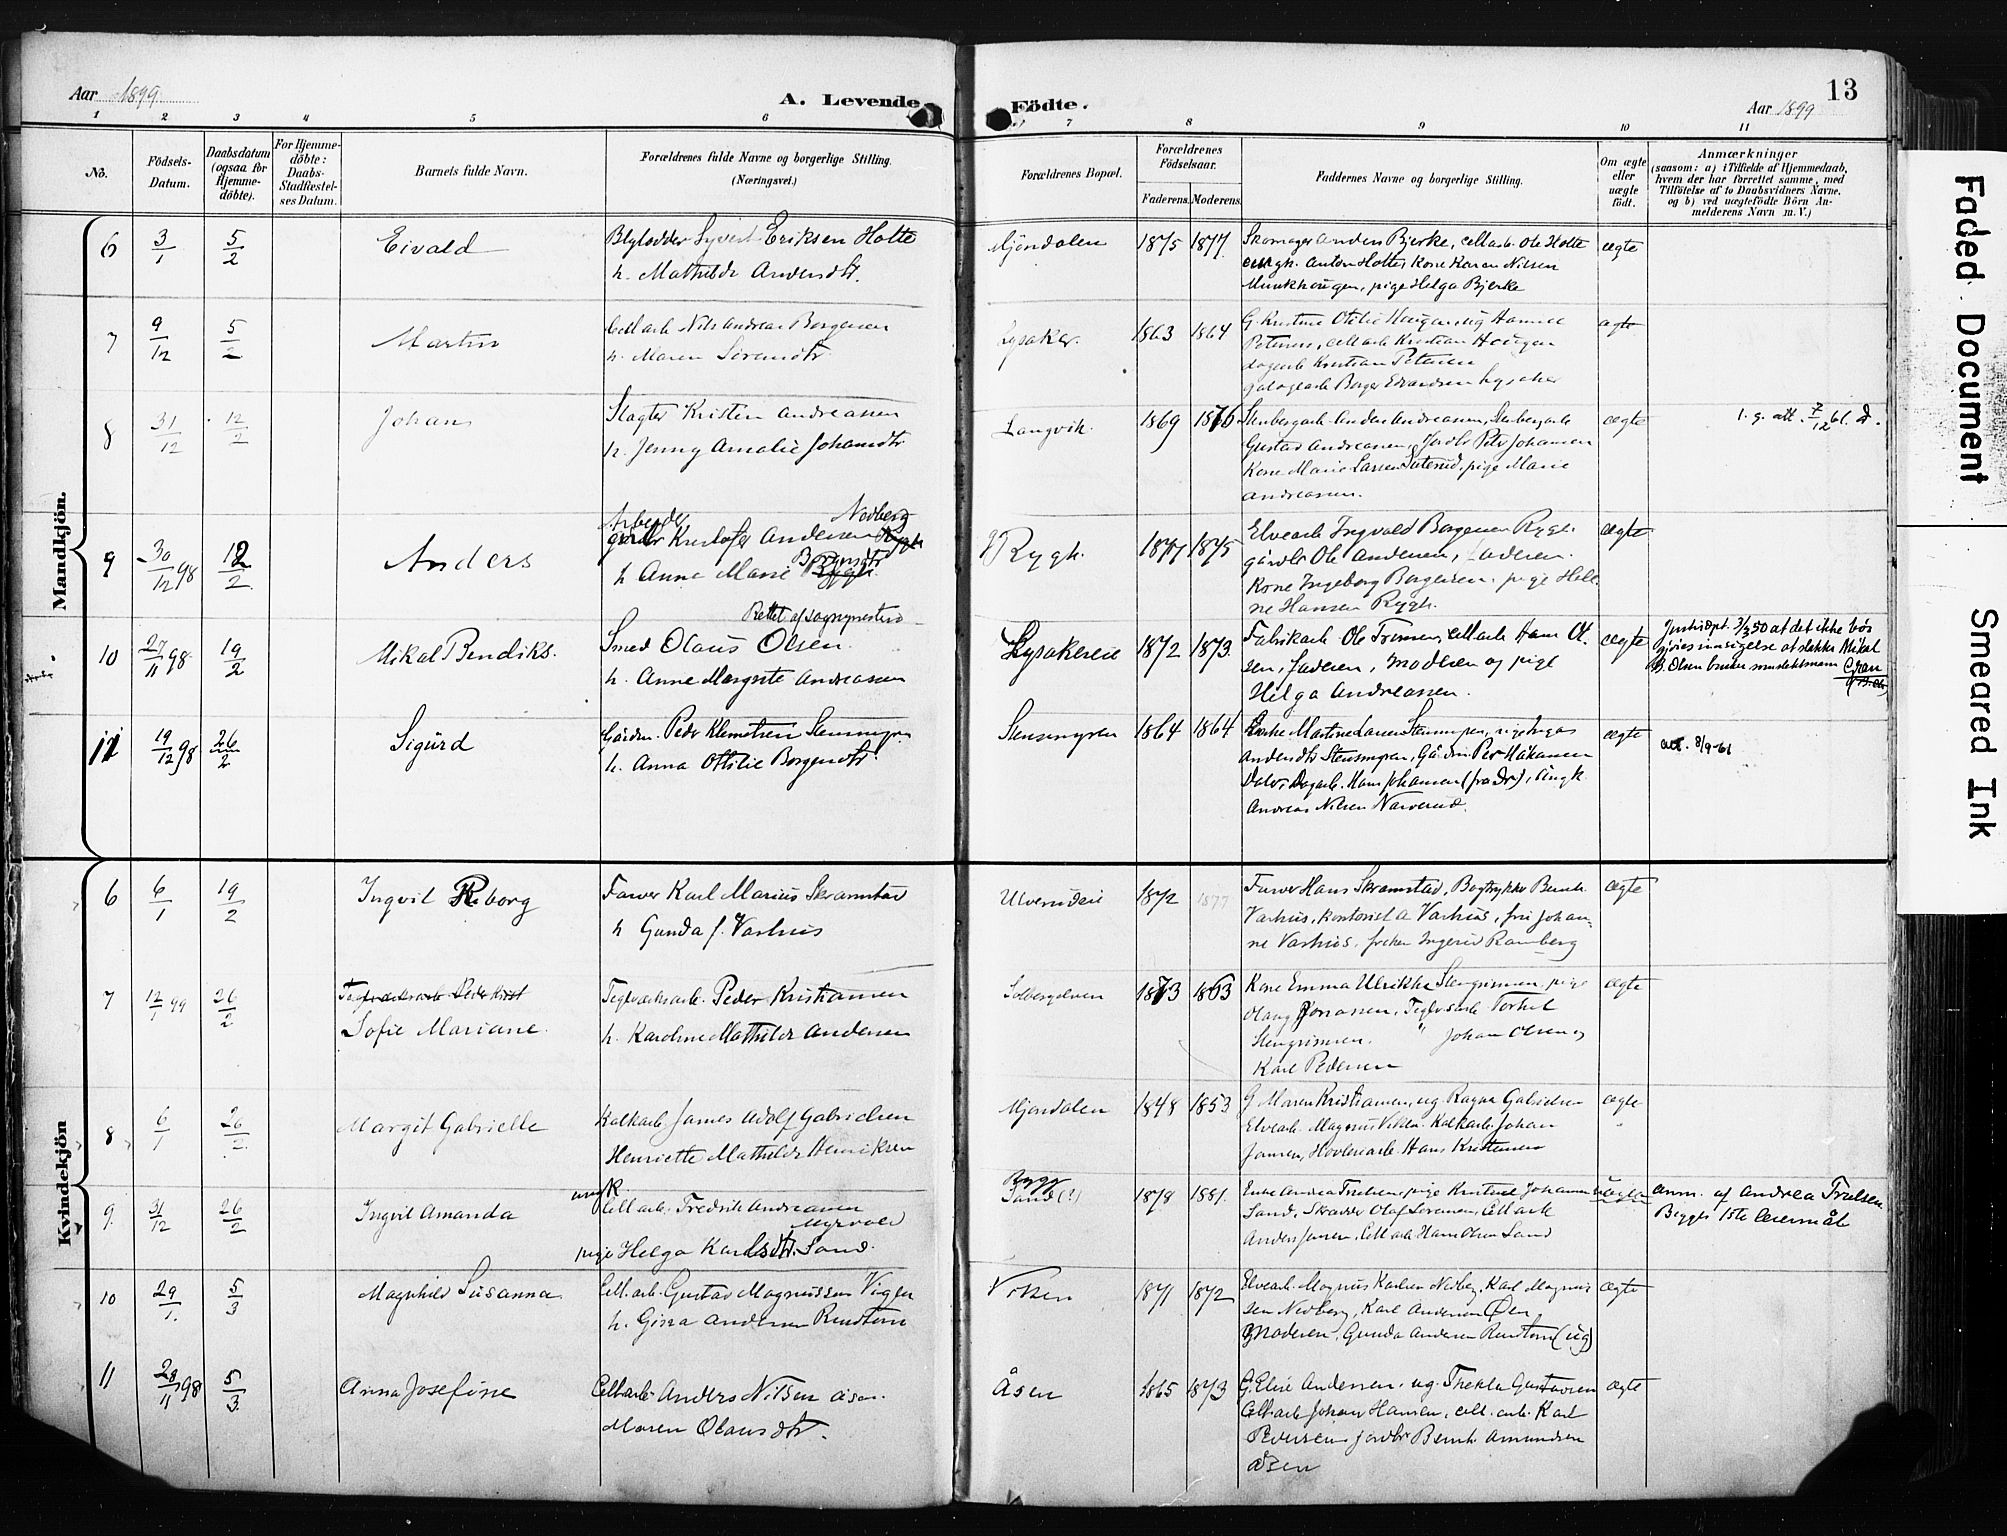 Aar 1899.
A. Levende
Födte.
Aar 1899
13
1 2 3 4 5 6 7 8 9 10 11
No.
Födsels-
Datum.
Daabsdatum
(ogsaa for
Hjemme-
döbte).
For Hjemme-
döbte:
Daabs-
Stadfæstel-
ses Datum.
Barnets fulde Navn.
Forældrenes fulde Navne og borgerlige Stilling.
(Næringsvei.)
Forældrenes Bopæl.
Forældrenes
Födselsaar.
Faderens.
Moderens.
Faddernes Navne og borgerlige Stilling.
Om ægte
eller
uægte
födt.
Anmærkninger
(saasom: a) i Tilfælde af Hjemmedaab,
hvem der har forrettet samme, med
Tilföielse af to Daabsvidners Navne,
og b) ved uægtefödte Börn An-
melderens Navn m. V.)
Mandkjön.
6 3/1 5/2 Eivald
Eriksen Hotte
h. Mathilde
Mjöndalen 1875 1877
Skomager Anders Bjerke, cellarb. Ole Hotte
ungk. Anton Hotte, kone Karen Nilsen
Munkhaugen, pige Helga Bjerke
ægte
7 9/12 5/2 Martin
Cellarb Nils Andreas Borgersen
h. Maren Sörensdtr.
Lysaker. 1863 1864
Petersen, cellarb Kristian Haugen
dagarb Kristian Petersen
Borger Edvardsen Lysaker
ægte
8 31/12 12/2 Johan
Slagter Kristen Andreassen
h. Jenny Amalie Johansdtr
Langvik. 1869 1876
Stenbergarb Anders Andreassen, Stenbergarb
Gustav Andreassen, Jordbr Peter Johansen
Kone Marie Larsen Suterud, pige Marie
Andreassen.
ægte
7/12 61.
9 30/12 98 12/2 Anders
Arbeider Nedberg
Kristofer Andersen
h Anna Marie
Rygh. 1877 1875
Elvearb Ingvald Borgersen Rygh.
gårdbr Ole Andersen, Faderen.
Kone Ingeborg Borgersen. pige Hele-
ne Hansen Rygh.
ægte
Rettet af sognepresten
10 27/11 98. 19/2 Mikal Bendiks.
Smed Olaus Olsen.
h. Anne Margrete Andreassen
Lysakereie 1872 1873.
Fabrikarb Ole Tronsen, cellarb Hans Ol-
sen, Faderen, Moderen og pige
Helga Andreassen.
ægte
Justisdpt. 3/3 50 at det ikke bör
gjöres innsigelse at slekter Mikal
B. Olsen bruker som slektsnavn Gran
11 19/12 98 26/2 Sigurd
Peder Klemetsen Stensmyren
h. Anna Ottilie Borgersdtr.
Stensmyren 1864 1864
Enke Martine Larsen Stensmyren, pige Inga
Andersdtr Stensmyren,
Dagarb. Hans Johansen (fra Dr), Ungk.
Andreas Nilsen Narverud.
ægte
att. 8/9-61
Kvindekjön
6 6/1 19/2 Ingvil Reborg
Farver Karl Marius Skramstad
h Gunda f. Varhus
Ulverudeie 1872 1877
Farver Hans Skramstad, Bogtrykker Bernh.
Varhus, kontorist A Varhus, fru Johan-
ne Varhus, fröken Ingerid Ramberg
ægte
7 12/1 99 26/2
Teglværksarb Peder Krist
Sofie Mariane.
Teglværksarb. Peder Kristiansen
h. Karoline Mathilde Andersen
Solbergelven 1873 1863
Kone Emma Ulrikke Stengrimsen, pige
Olaug Jonassen, Teglv.arb Torkel
Stengrimsen. " Johan Olsen og
Karl Pedersen
ægte
8 6/1 26/2 Margit Gabrielle
Kalkarb James Adolf Gabrielsen
Henriette Mathilde Henriksen
Mjöndalen 1848 1853
G. Maren Kristiansen, ug. Ragna Gabrielsen
Elvearb. Magnus Viken. Kalkarb. Johan
Jansen, Hövleriarb. Hans Kristensen
ægte
9. 31/12 26/2 Ingvil Amanda
ungk
Cellarb. Fredrik Andreassen
Myrvold
pige Helga Karlsdtr. Sand.
Sand (?) 1878 1881.
Enke Andrea Truelsen, pige Kristine Johansen
Sand. Skrædder Olaf Sörensen, Cellarb
Anders Jansen, Cellarb Hans Olsen Sand
uægte
Anm. af Andrea Truelsen
Begges 1ste Leiermål
10 29/1. 5/3 Magnhild Susanna
Cell.arb. Gustav Magnussen Viger
h. Gina Andersen
Viken 1871 1872
Elvearb. Magnus Karlsen Nedberg, Karl Magnus-
sen Nedberg, Karl Andersen Öen,
Moderen, Gunda Andersen (ug)
ægte
11 28/11 98 5/3 Anna Josefine
Cellarb. Anders Nilsen Åsen.
Maren Olausdtr.
Åsen 1865 1873
G. Elise Andersen, ug. Thekla Gustavsen
Cell.arb Johan Hansen, cell.arb. Karl
Pedersen, jordbr Bernh. Amundsen
Åsen
ægte
Faded Document
Smeared Ink